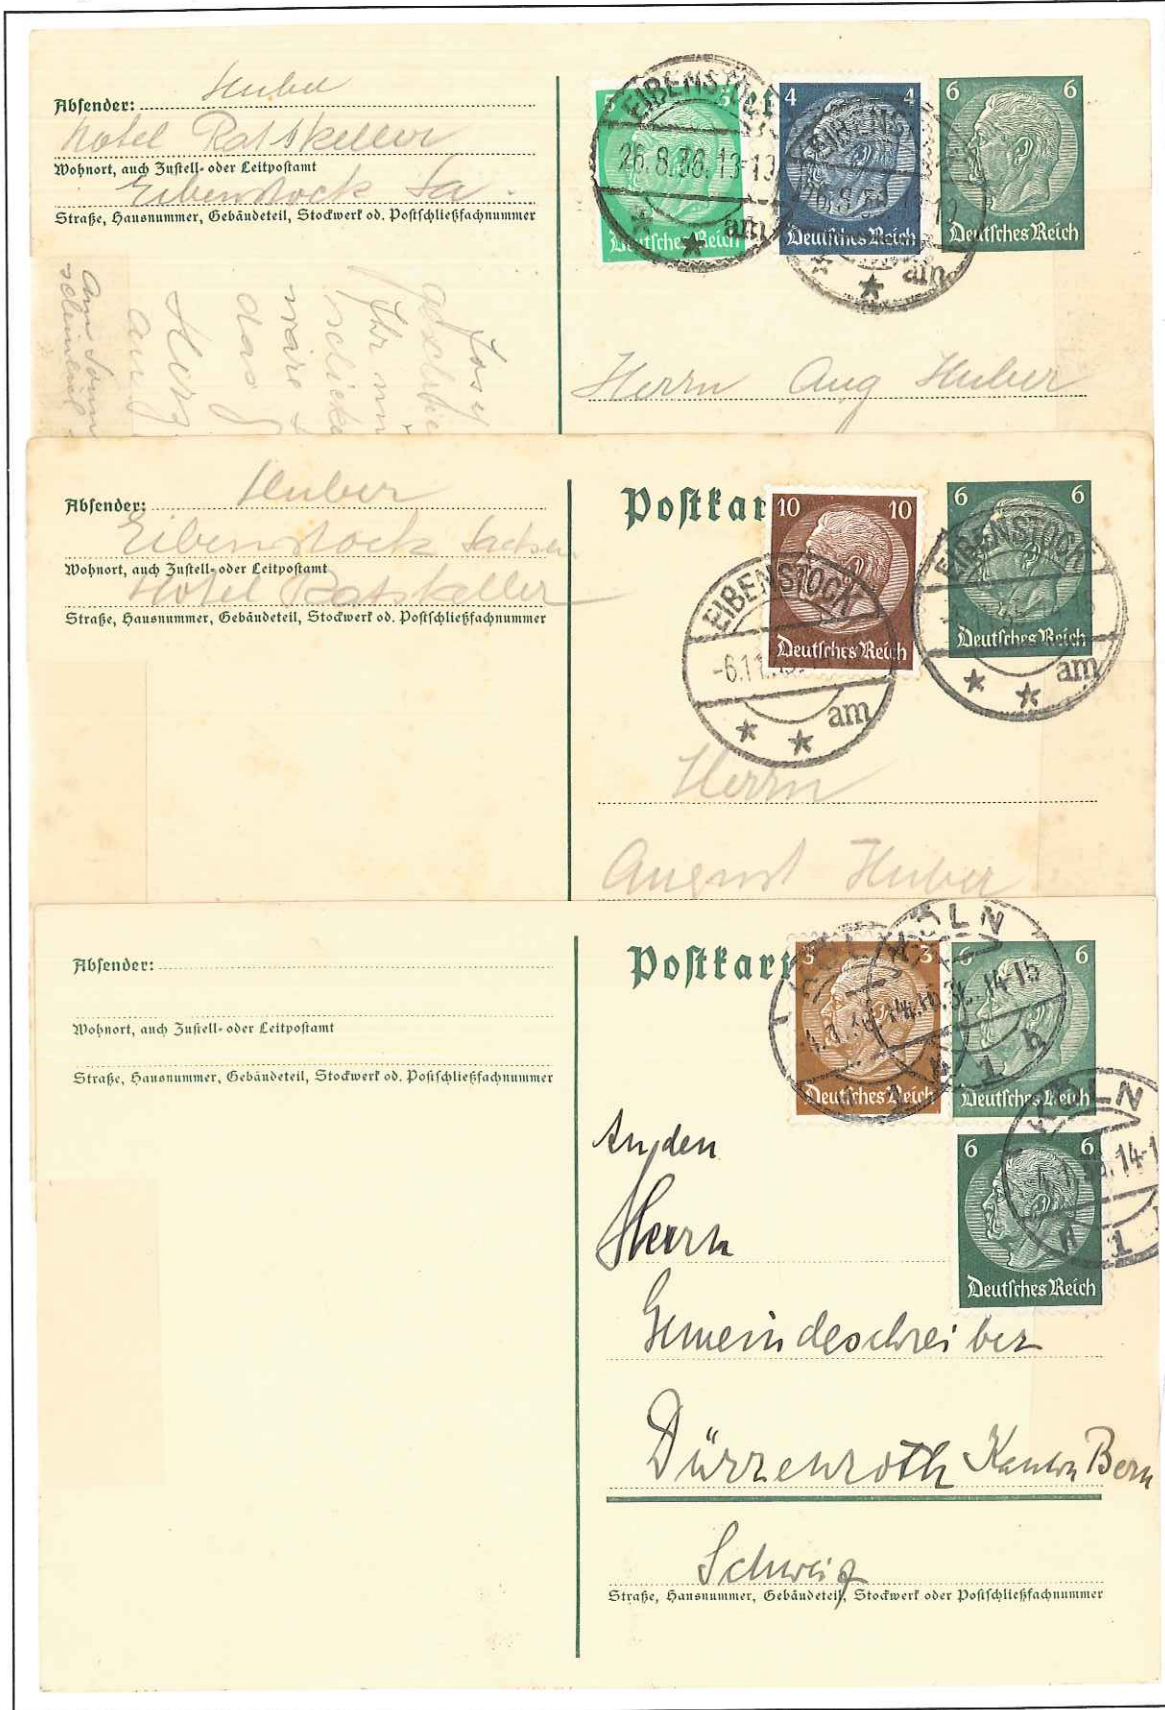 Absender: Huber
Hotel Ratskeller
Wohnort, auch Zustell- oder Leitpostamt
Eibenstock Sa.
Straße, Hausnummer, Gebäudeteil, Stockwerk od. Postschließfachnummer
5 5
Deutsches Reich
4 4
Deutsches Reich
6 6
Deutsches Reich
EIBENSTOCK
26.8.36.13-19
am
EIBENSTOCK
am
Herrn Aug Huber
das
wäre
Ihr
Absender: Huber
Eibenstock Sachsen
Wohnort, auch Zustell- oder Leitpostamt
Hotel Ratskeller
Straße, Hausnummer, Gebäudeteil, Stockwerk od. Postschließfachnummer
Postkar
10 10
Deutsches Reich
6 6
Deutsches Reich
EIBENSTOCK
-6.11.
am
EIBENSTOCK
am
Herrn
August Huber
Absender:
Wohnort, auch Zustell- oder Leitpostamt
Straße, Hausnummer, Gebäudeteil, Stockwerk od. Postschließfachnummer
Postkart
3 3
Deutsches Reich
6 6
Deutsches Reich
KÖLN
14-15
1
6 6
Deutsches Reich
KÖLN
1
An den
Herrn
Gemeindeschreiber
Dürrenroth Kanton Bern
Schweiz
Straße, Hausnummer, Gebäudeteil, Stockwerk oder Postschließfachnummer